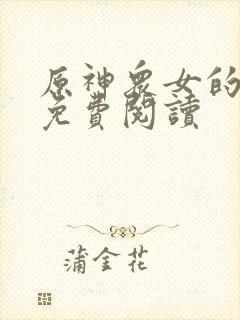 原神衆女的
免費閱讀
蒲金花